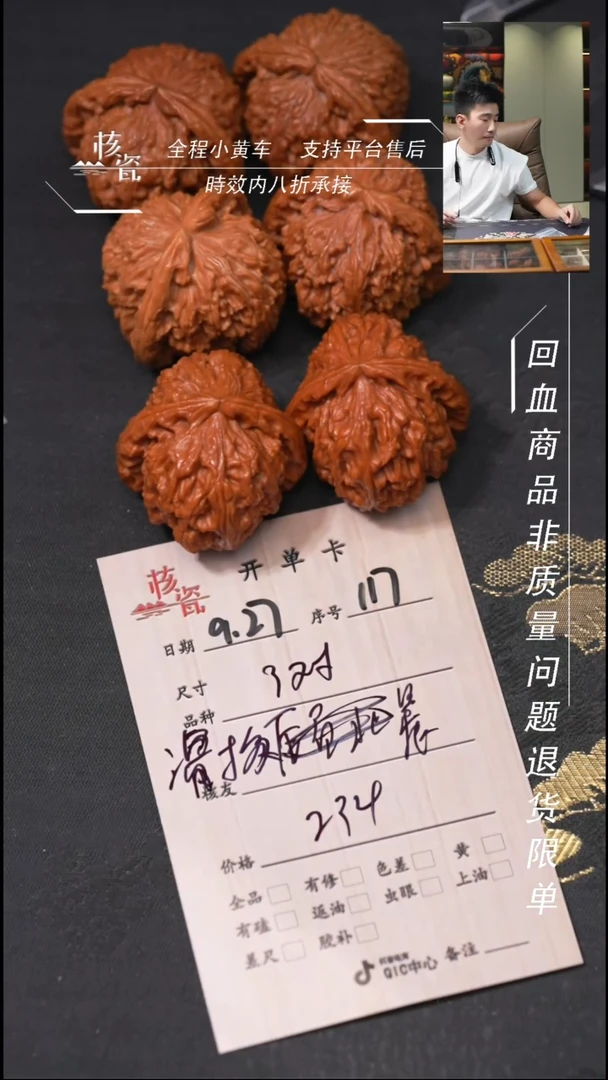 核瓷
全程小黄车 支持平台售后
時效内八折承接
回血商品非质量问题退货限单
核瓷
开单卡
日期 9.27 序号 117
尺寸 3对
品种
核友
234
价格
全品 有修 色差 黄
有磕 返油 虫眼 上油
差尺 胶补
抖音电商
QIC中心 备注